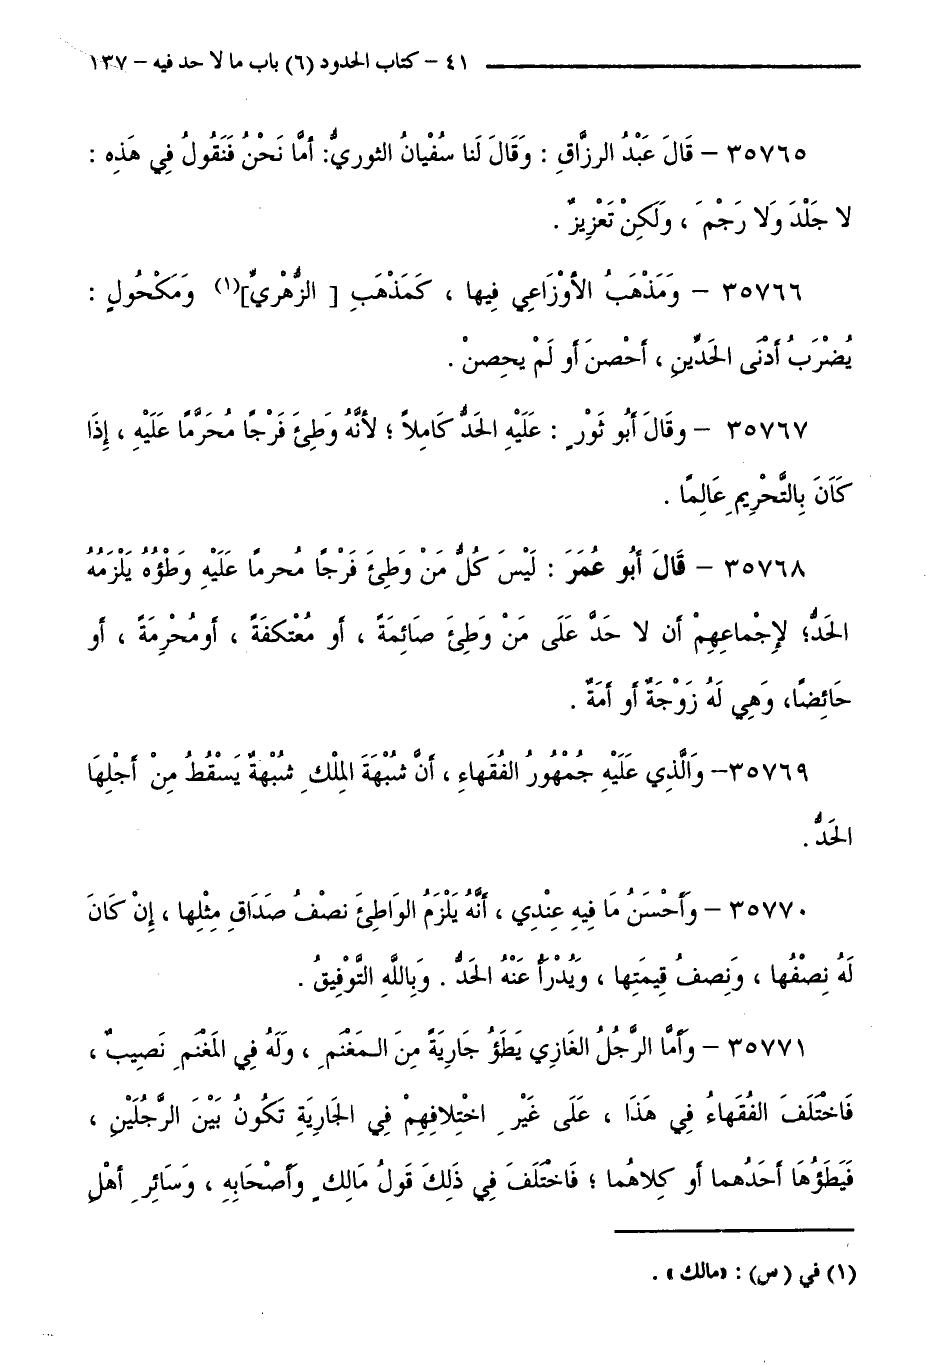 ٤١ – كتاب الحدود (٦) باب ما لا حد فيه – ١٣٧
٣٥٧٦٥ – قَالَ عَبْدُ الرزَّاقِ : وَقَالَ لَنا سفْيانُ الثوريُّ: أمَّا نَحْنُ فَنَقُولُ فِي هَذهِ :
لا جَلْدَ وَلا رَجْمَ ، وَلَكِنْ تَعْزِيزٌ .
٣٥٧٦٦ – وَمَذْهَبُ الأوْزَاعِي فِيها ، كَمَذْهَبِ [ الزُّهْرِيِّ](١) وَمَكْحُولٍ :
يُضْرَبُ أدْنَى الحَدَّينِ ، أحْصنَ أو لَمْ يحصِنْ .
٣٥٧٦٧ – وقَالَ أبُو ثَوْرٍ : عَلَيْهِ الحَدُّ كَامِلاً ؛ لأنَّهُ وَطِئَ فَرْجًا مُحَرَّمًا عَلَيْهِ ، إذَا
كَانَ بِالتَّحْرِيمِ عَالِمًا .
٣٥٧٦٨ – قَالَ أبُو عُمَرَ : لَيْسَ كُلُّ مَنْ وَطِئَ فَرْجًا مُحرمًا عَلَيْهِ وَطْؤُهُ يَلْزَمُهُ
الحَدُّ؛ لإِجْماعِهِمْ أن لا حَدَّ عَلَى مَنْ وَطِئَ صَائِمَةً ، أو مُعْتكفَةً ، أومُحْرِمَةً ، أو
حَائِضًا، وَهِي لَهُ زَوْجَةٌ أو أمَةٌ .
٣٥٧٦٩– وَالَّذِي عَلَيْهِ جُمْهُورُ الفُقَهاءِ ، أنَّ شُبْهَةَ المِلْكِ شُبْهةٌ يَسْقُطُ مِنْ أجْلِهَا
الحَدُّ .
٣٥٧٧٠ – وَأحْسَنُ مَا فِيهِ عِنْدِي ، أنَّهُ يَلْزَمُ الوَاطِئَ نصْفُ صَدَاقِ مِثْلِها ، إِنْ كَانَ
لَهُ نِصْفُها ، وَنِصفُ قِيمَتِها ، وَيُدْرأُ عَنْهُ الحَدُّ . وَبِاللَّهِ التَّوْفِيقُ .
٣٥٧٧١ – وَأمَّا الرَّجُلُ الغَازِي يَطَؤُ جَارِيَةً مِنَ الـمَغْنَمِ ، وَلَهُ فِي المَغْنَمِ نَصِيبٌ ،
فَاخْتَلَفَ الفُقَهاءُ فِي هَذَا ، عَلَى غَيْرِ اخْتِلافِهِمْ فِي الجَارِيَةِ تَكُونُ بَيْنَ الرَّجُلَيْنِ ،
فَيَطَؤُهَا أحَدُهما أو كِلاهُما ؛ فَاخْتَلَفَ فِي ذَلِكَ قَولُ مَالِكٍ وَأصْحَابِهِ ، وَسَائِرِ أهْلِ
(١) في ( س) : «مالك» .